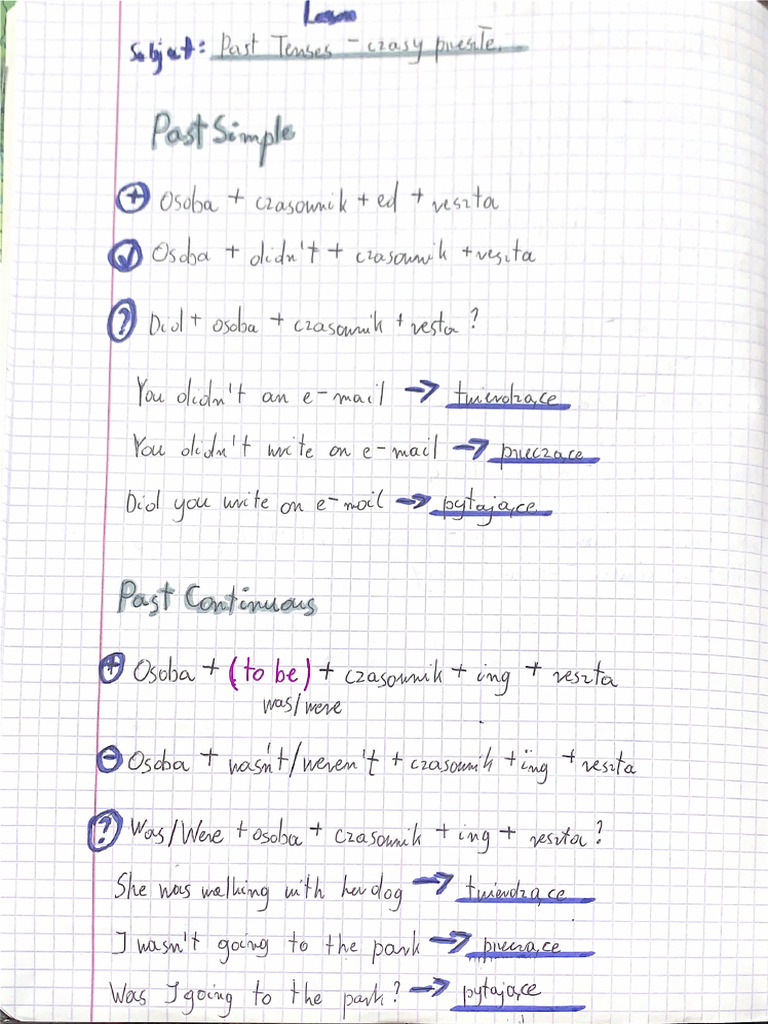 Lesson
Subject: Past Tenses - czasy przeszłe.
Past Simple
+ Osoba + czasownik + ed + reszta
Osoba + didn't + czasownik + reszta
? Did + osoba + czasownik + resta?
You didn't an e-mail → twierdzące
You didn't write an e-mail → przeczące
Did you write an e-mail → pytające
Past Continuous
+ Osoba + (to be) + czasownik + ing + reszta
was/were
- Osoba + wasn't/weren't + czasownik + ing + reszta
? Was/Were + osoba + czasownik + ing + reszta?
She was walking with her dog → twierdzące
I wasn't going to the park → przeczące
Was I going to the park? → pytające